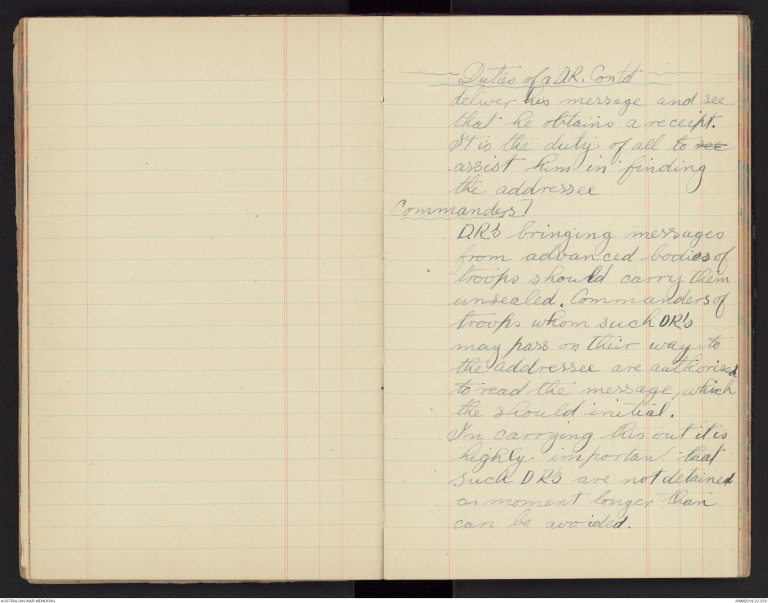 Duties of a D.R. Contd
deliver his message and see
that he obtains a receipt.
It is the duty of all to see
assist him in finding
the addressee
Commanders?
D.R's bringing messages
from advanced bodies of
troops should carry them
unsealed. Commanders of
troops whom such DR's
may pass on their way to
the addressee are authorised
to read the message, which
the should initial.
In carrying this out it is
highly important that
such DR's are not detained
a moment longer than
can be avoided.
AUSTRALIAN WAR MEMORIAL